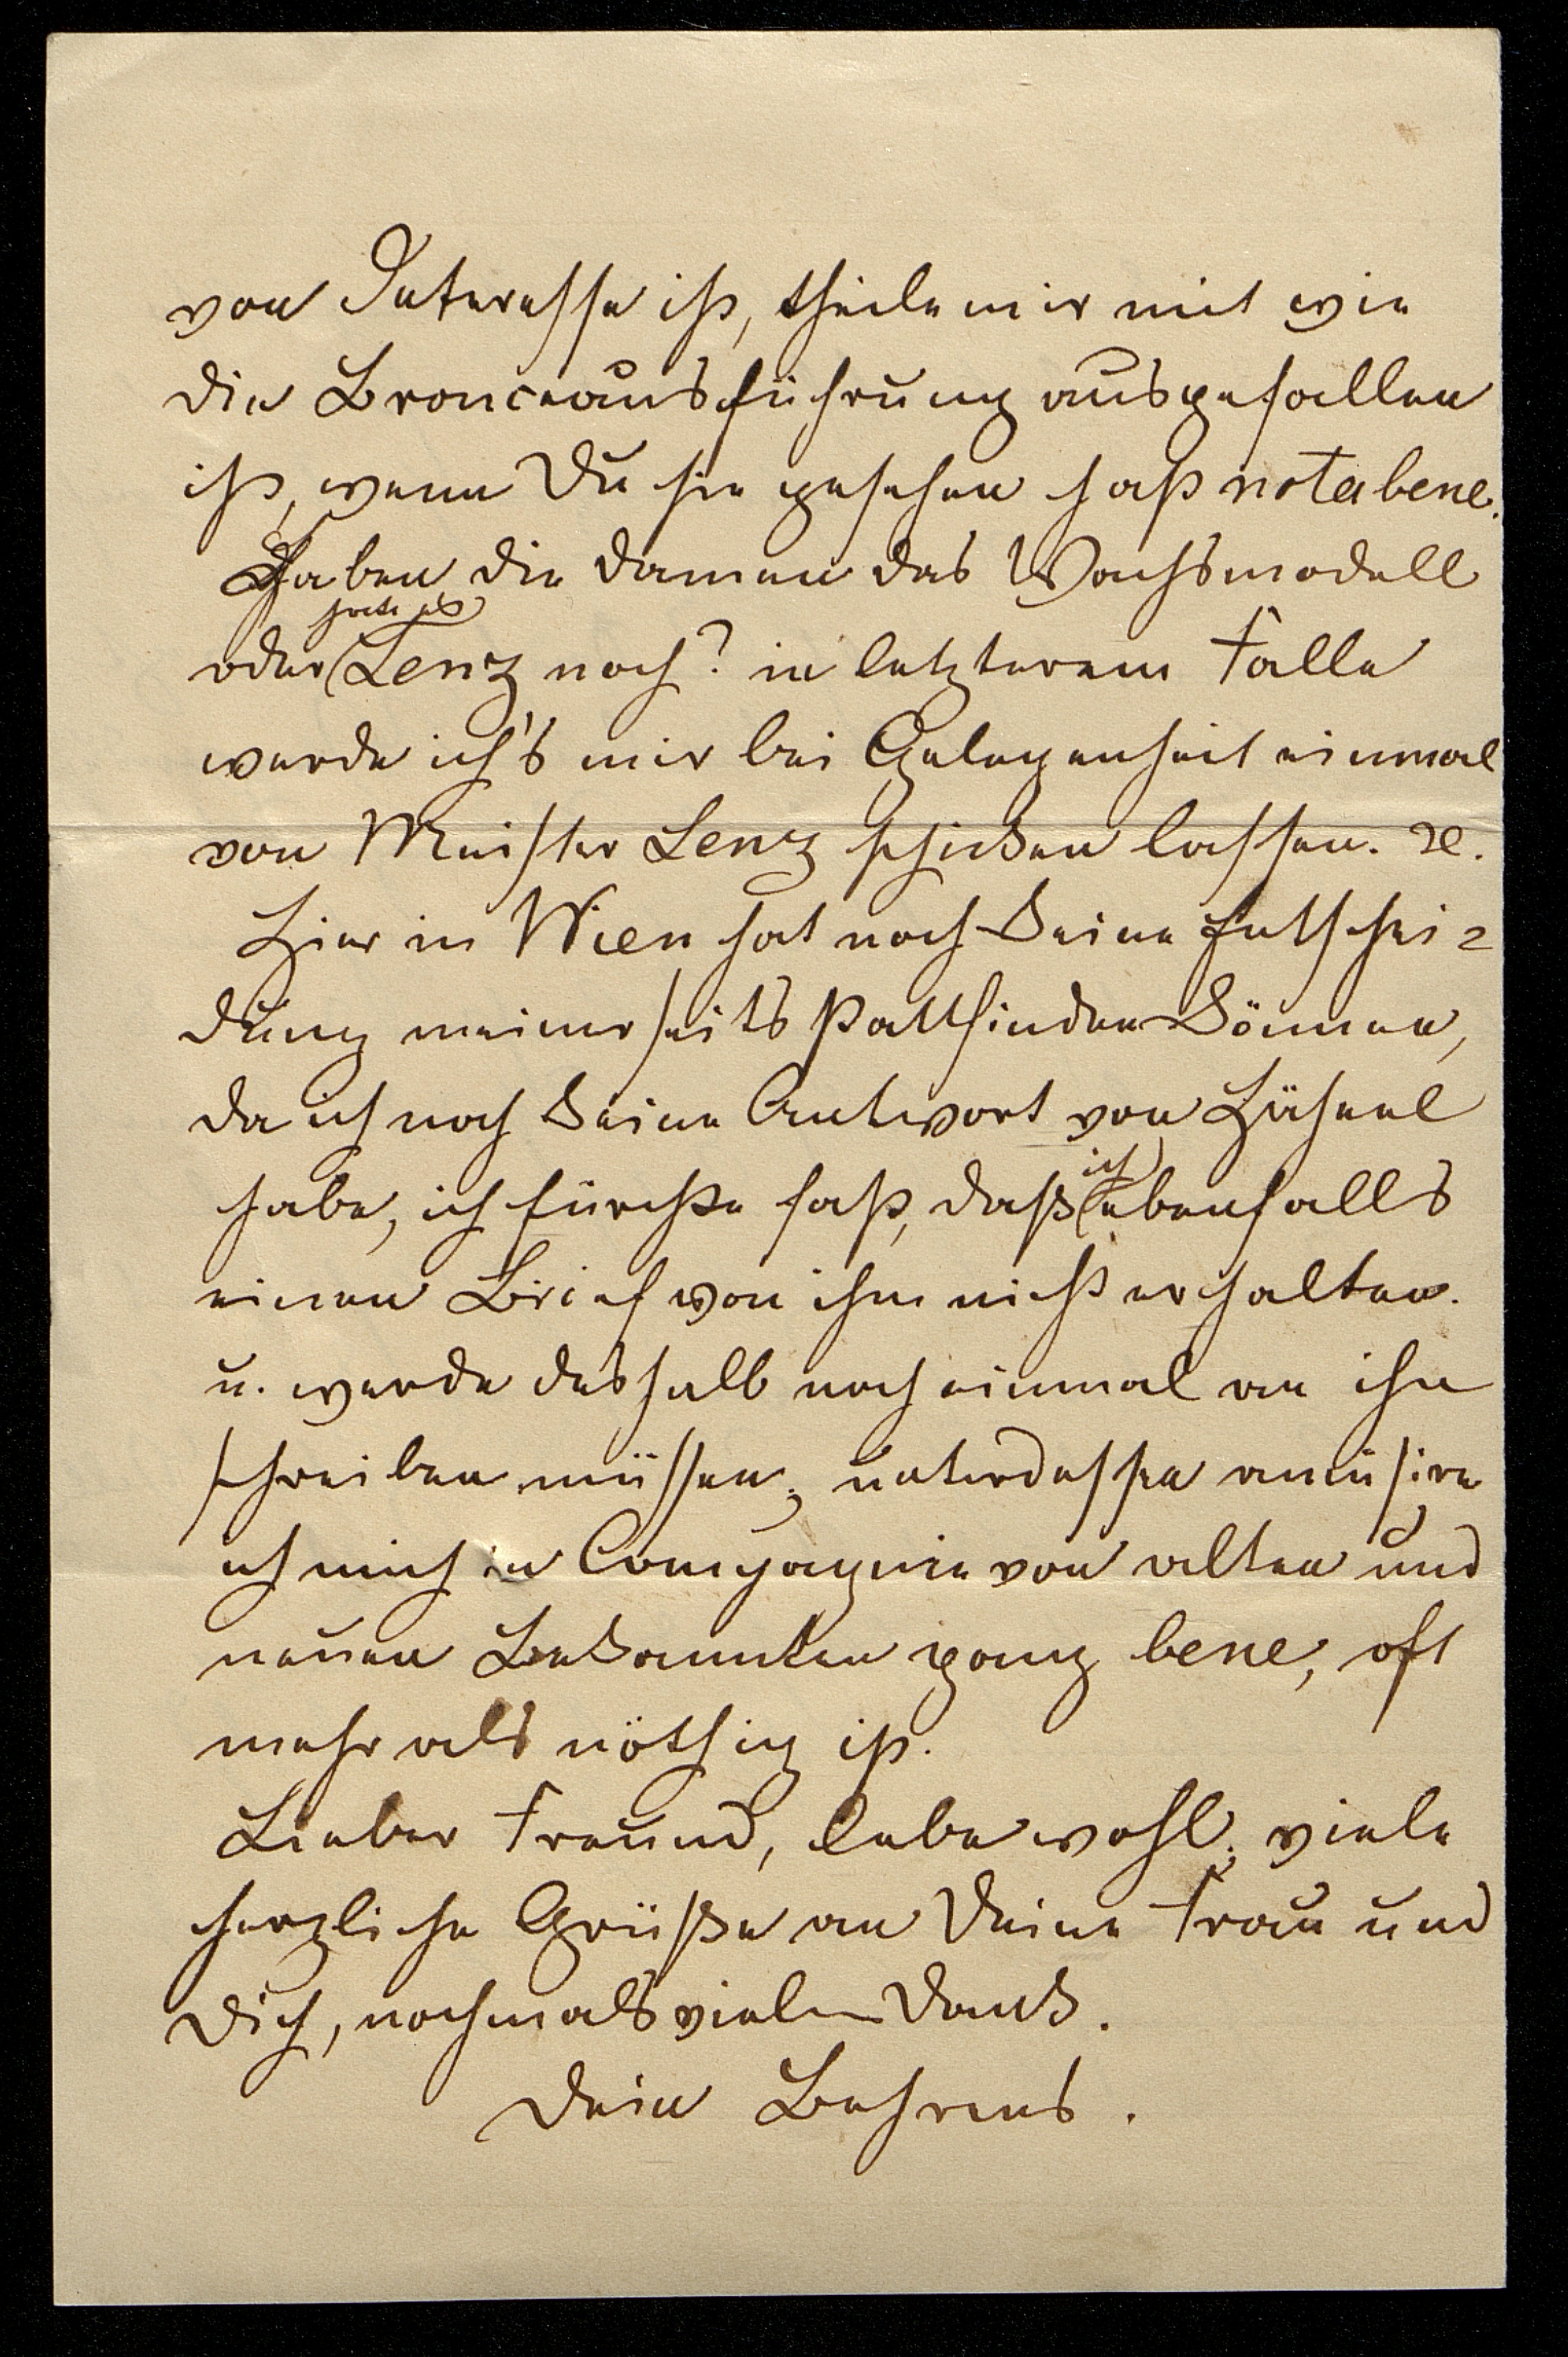 von Interesse ist, theile mir mit wie
die Bronceausführung ausgefallen
ist, wenn Du sie gesehen hast notabene.
Haben die Damen das Wachsmodell
hat es
oder Lenz noch? in letzterem Falle
werde ich's mir bei Gelegenheit einmal
von Meister Lenz schicken lassen. etc.
Hier in Wien hat noch keine Entschei=
dung meinerseits stattfinden können,
da ich noch keine Antwort von Hähnel
habe, ich fürchte fast, daß
ich
ebenfalls
einen Brief von ihm nicht erhalten.
u. werde deshalb noch einmal an ihn
schreiben müssen; unterdessen amüsire
ich mich in Compagnie von alten und
neuen Bekannten ganz bene, oft
mehr als nöthig ist.
Lieber Freund, lebe wohl; viele
herzliche Grüße an Deine Frau und
Dich, nochmals vielen Dank.
Dein Behrens.